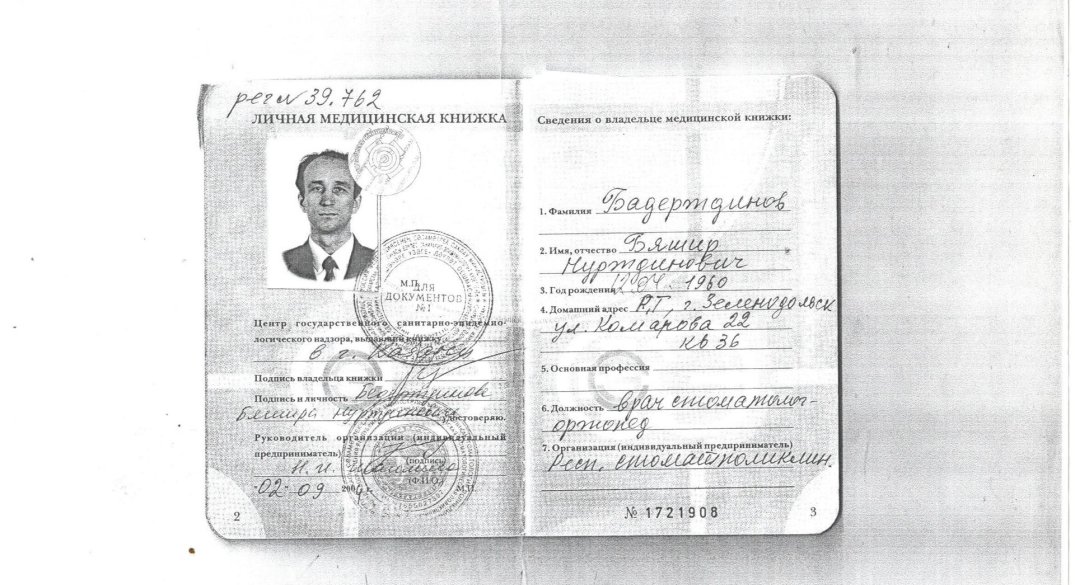 рег № 39.762
ЛИЧНАЯ МЕДИЦИНСКАЯ КНИЖКА
М.П.
ДЛЯ
ДОКУМЕНТОВ
№1
Центр государственного санитарно-эпидемио-
логического надзора, выдавший книжку
в г. Казань
Подпись владельца книжки
Подпись и личность Бадертдинова
Бяшира Нуртдиновича удостоверяю.
Руководитель организации (индивидуальный
предприниматель)
(подпись)
Н. И.
(Ф.И.О.)
02 09 2004 М.П.
2
Сведения о владельце медицинской книжки:
1. Фамилия Бадертдинов
2. Имя, отчество Бяшир
Нуртдинович
3. Год рождения 12 04 1960
4. Домашний адрес РТ, г. Зеленодольск
ул. Комарова 22
кв 36
5. Основная профессия
6. Должность врач стоматолог-
ортопед
7. Организация (индивидуальный предприниматель)
Респ. стоматполиклин.
№ 1721908
3